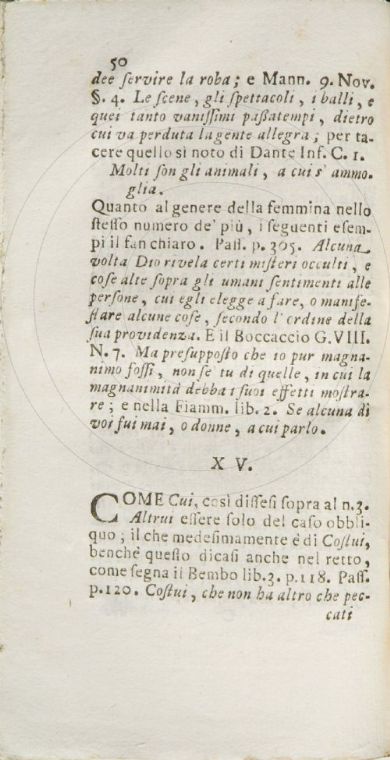 50
dee ſervire la roba; e Mann. 9. Nov.
§. 4. Le ſcene, gli ſpettacoli, i balli, e
quei tanto vaniſſimi paßatempi, dietro
cui va perduta la gente allegra; per ta-
cere quello sì noto di Dante Inf. C. 1.
Molti ſon gli animali, a cui s' ammo.
glia.
Quanto al genere della femmina nello
ſteſſo numero de' più, i ſeguenti eſem-
pi il fan chiaro. Paſſ. p. 305. Alcuna
volta Dio rivela certi miſteri occulti, e
coſe alte ſopra gli umani ſentimenti alle
perſone, cui egli elegge a fare, o manife-
ſtare alcune coſe, ſecondo l' ordine della
ſua providenza. E il Boccaccio G.VIII.
N. 7. Ma preſuppoſto che io pur magna-
nimo foſſi, non ſe tu di quelle, in cui la
magnanimità debba i ſuoi effetti moſtra-
re; e nella Fiamm. lib. 2. Se alcuna di
voi fui mai, o donne, a cui parlo.
X V.
COME Cui, così diſſeſi ſopra al n.3.
Altrui eſſere ſolo del caſo obbli-
quo; il che medeſimamente è di Coſtui,
benchè queſto dicaſi anche nel retto,
come ſegna il Bembo lib.3. p.118. Paſſ.
p.120. Coſtui, che non ha altro che pec-
cati